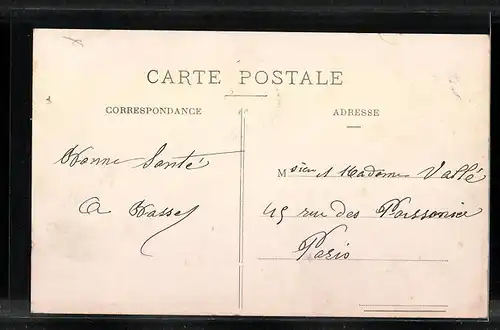 CARTE POSTALE
CORRESPONDANCE
ADRESSE
Bonne Santé
Msieu et Madame Vallé
45 rue des Poissonier
Paris